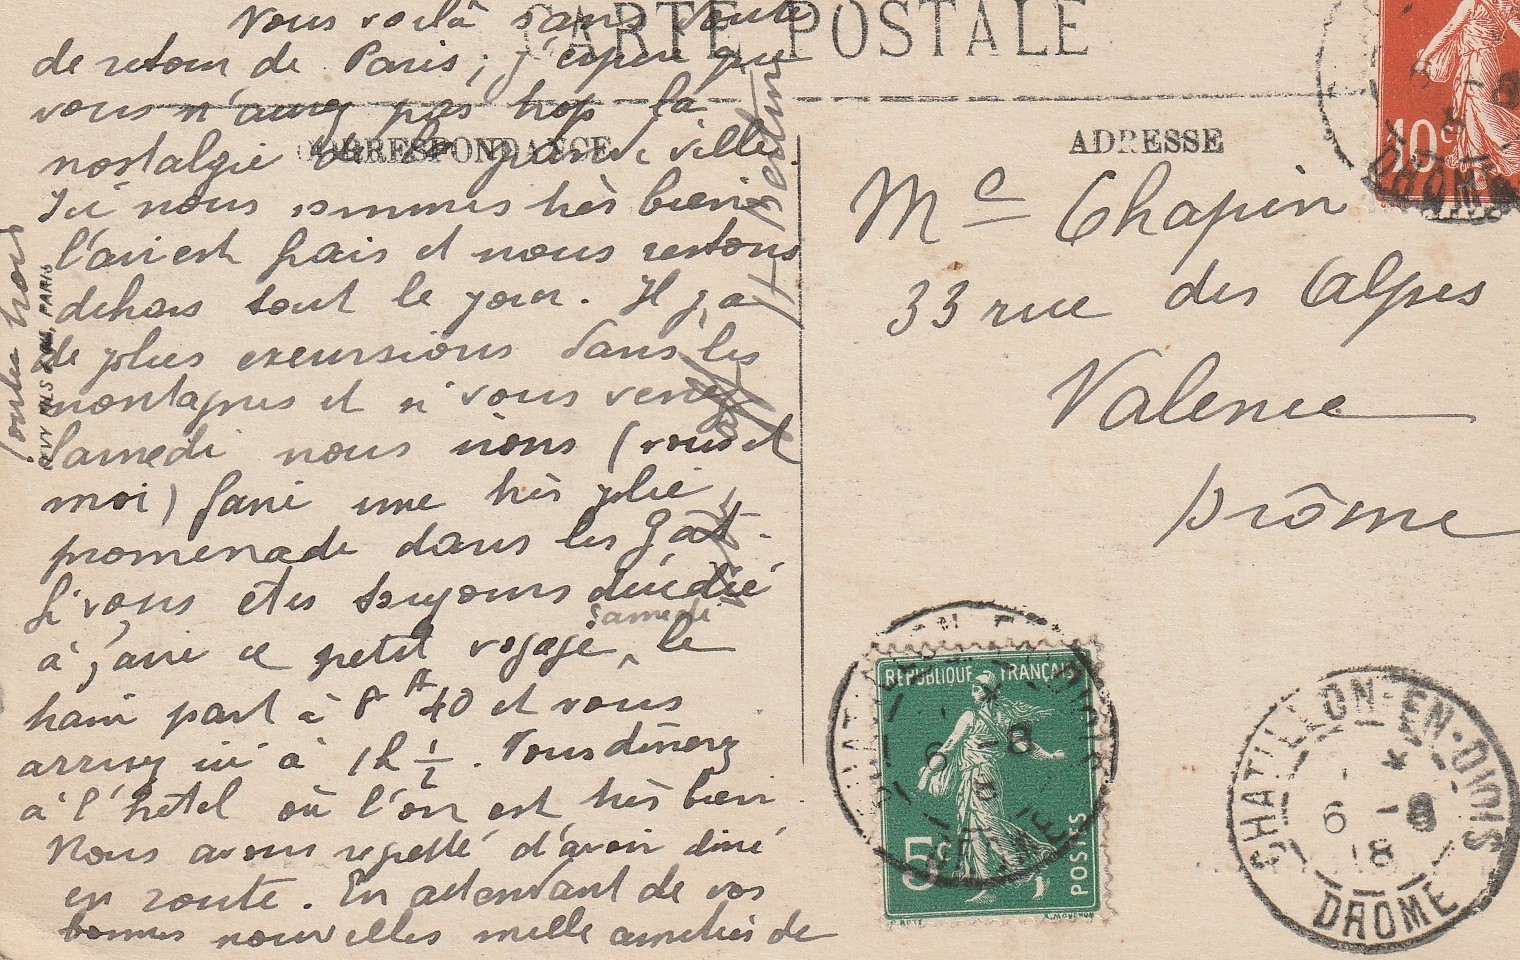 CARTE POSTALE
CORRESPONDANCE
ADRESSE
Vous voilà sans doute
de retour de Paris, j'espère que
vous n'aurez pas trop la
nostalgie de la grande ville.
Ici nous sommes très bien
l'air est frais et nous restons
dehors tout le jour. Il y a
de plus excursions dans les
montagnes et si vous venez
Samedi nous irons (vous et
moi) faire une très jolie
promenade dans les Gât.
Si vous êtes toujours décidé
à faire ce petit voyage samedi, le
train part à 8H40 et vous
arrivez ici à 1h 1/2. Vous dînerez
à l'hôtel où l'on est très bien.
Nous avons regretté d'avoir diné
en route. En attendant de vos
bonnes nouvelles mille amitiés de
toutes trois
LEVY FILS & Cie, PARIS
Me Chapin
33 rue des Alpes
Valence
Drôme
10c
DROME
REPUBLIQUE FRANÇAISE
5c
POSTES
CHATILLON-EN-DIOIS
6 -8
18
DROME
CHATILLON-EN-DIOIS
6 -8
18
DROME